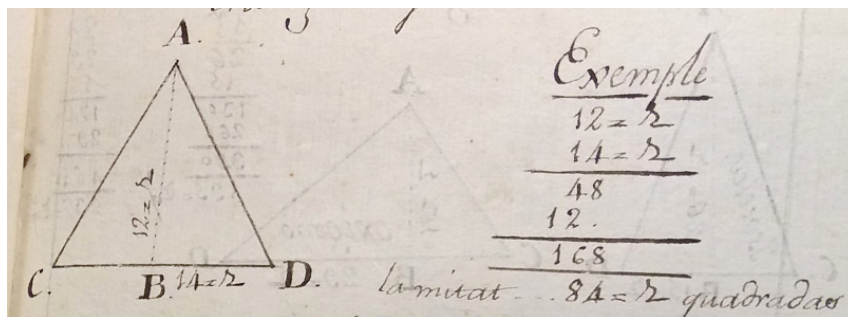 A.
12 = 2
C. B. 14 = 2 D.
Exemple
12 = 2
14 = 2
48
12.
168
la mitat ... 84 = 2 quadradas